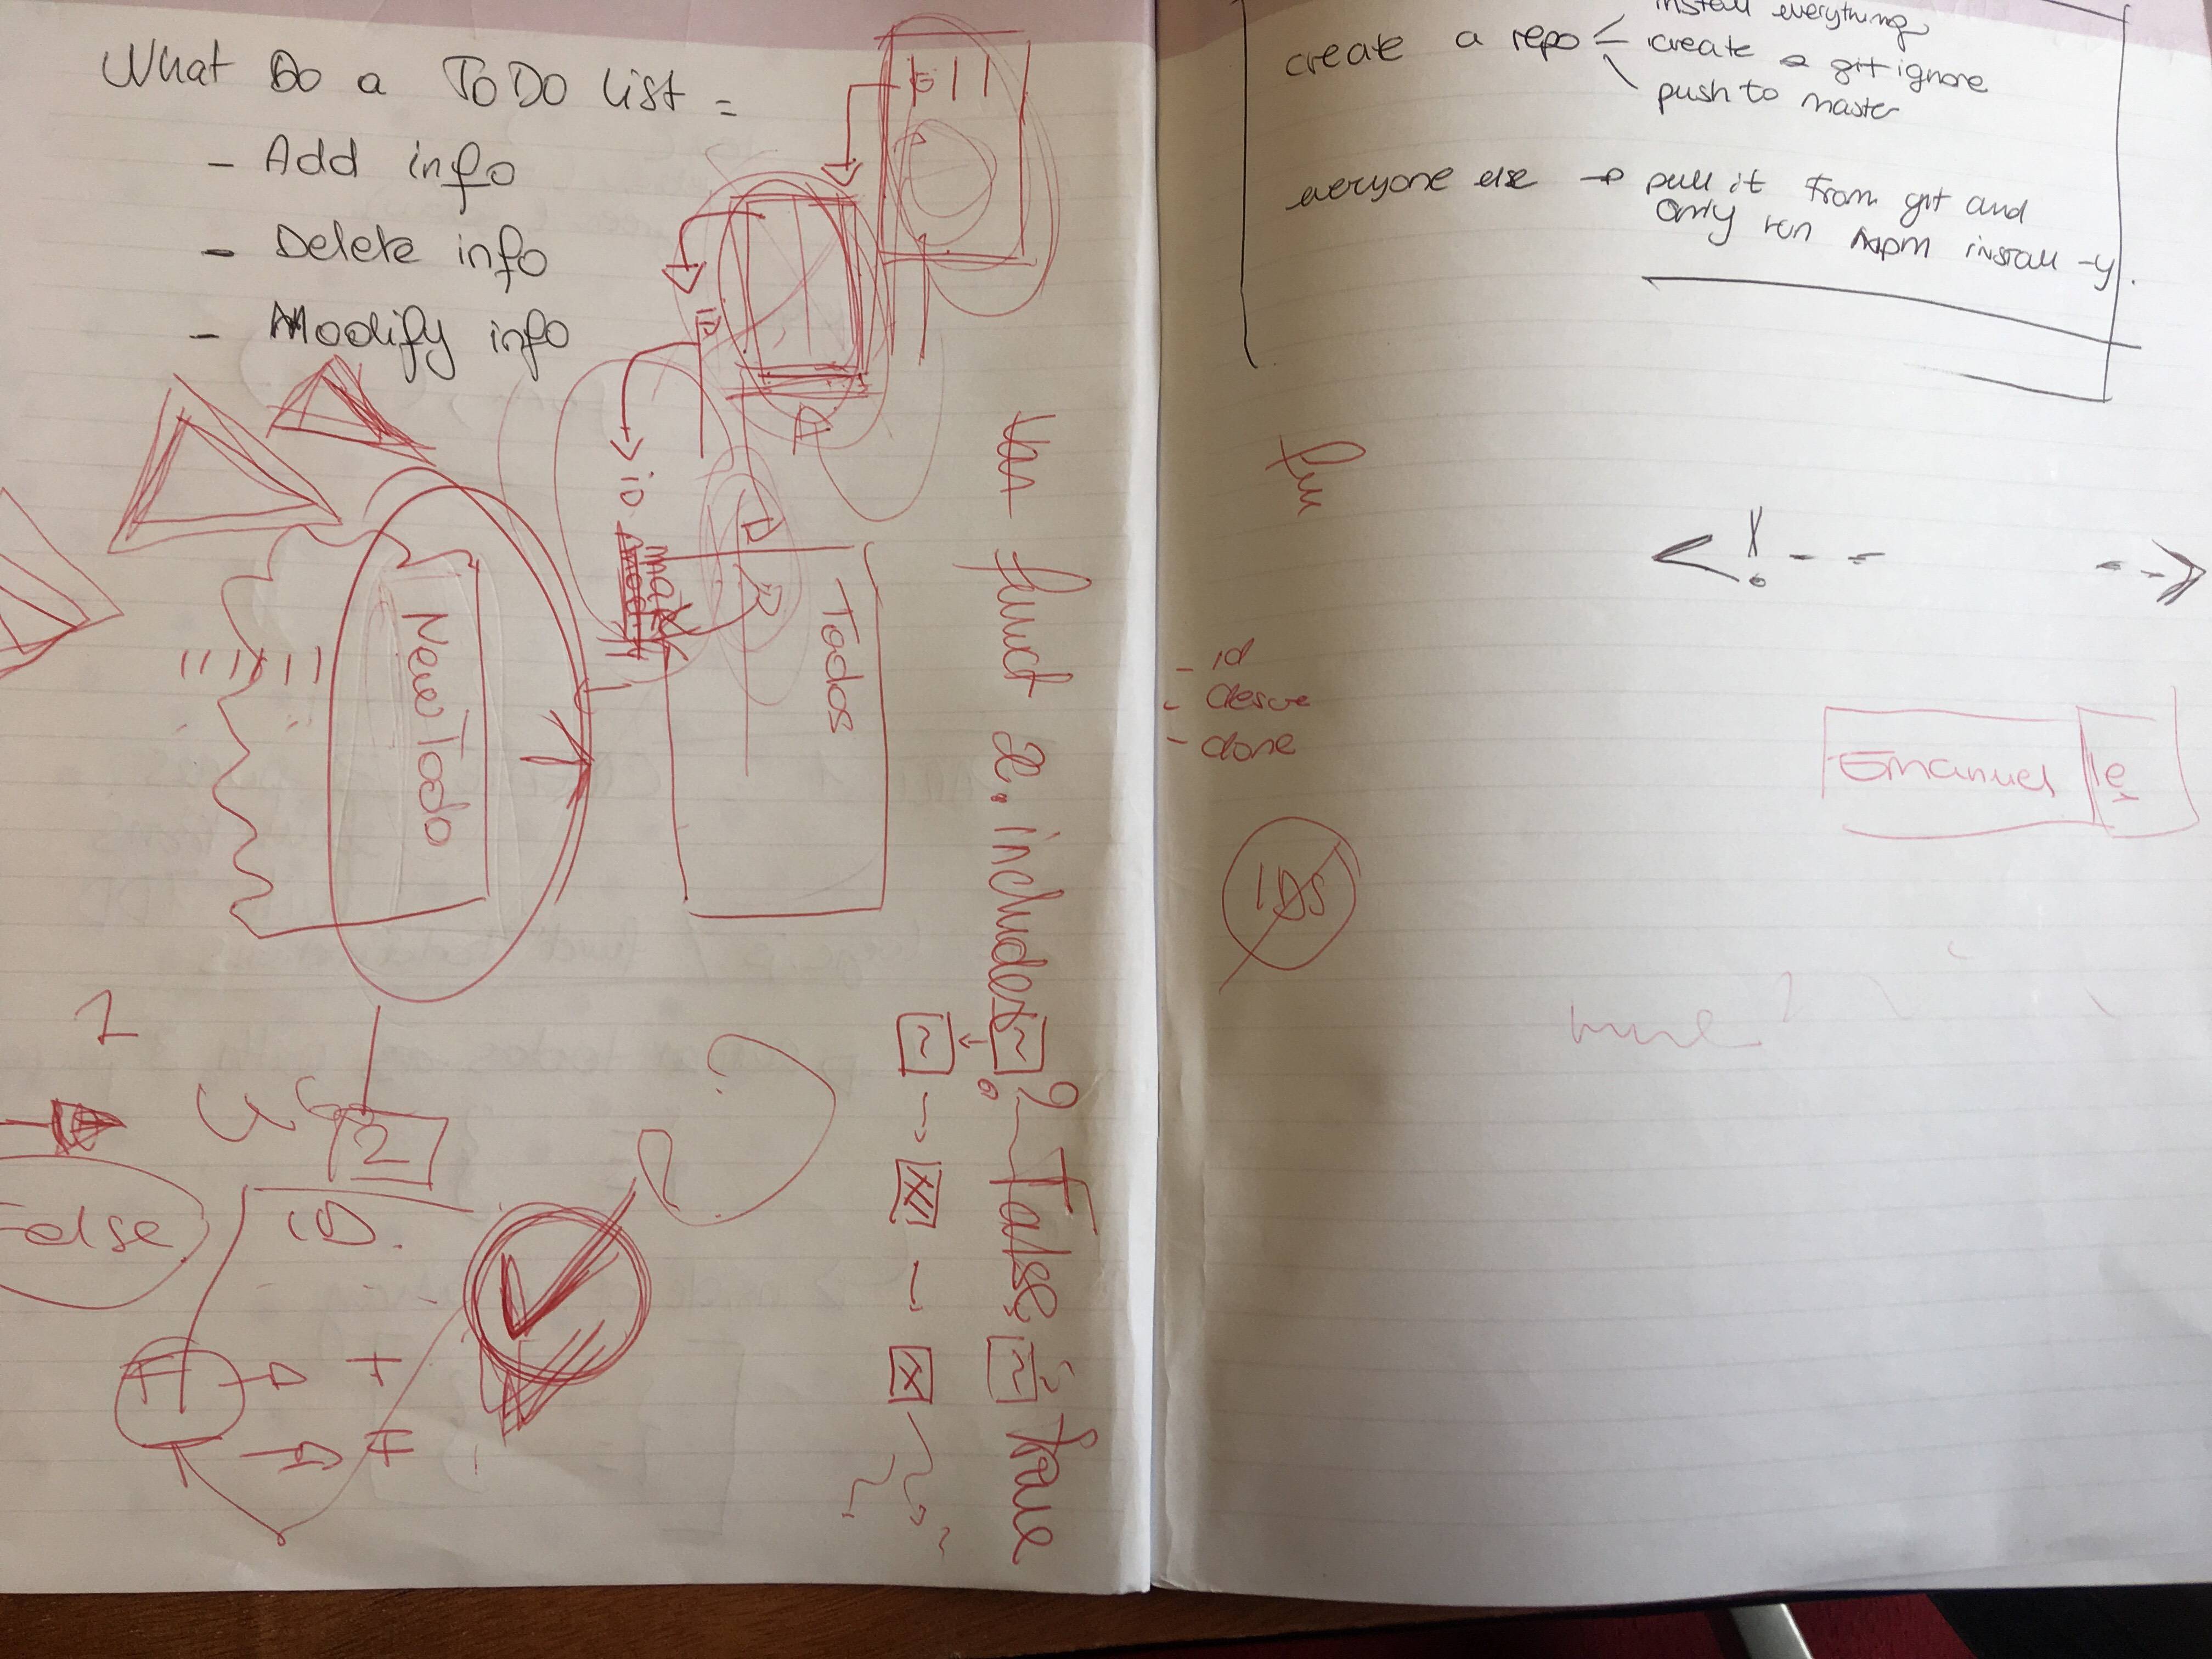 What Do a ToDo list =
- Add info
- Delete info
- Modify info
A
iD
D
R
Todos
New Todo
x. includes
? False
true
1
2
iD.
False
+
install everything
create a repo < create a gitignore
push to master
everyone else → pull it from git and
only run npm install -y.
<!-- -->
- id
- done
IDS
Emanuel e